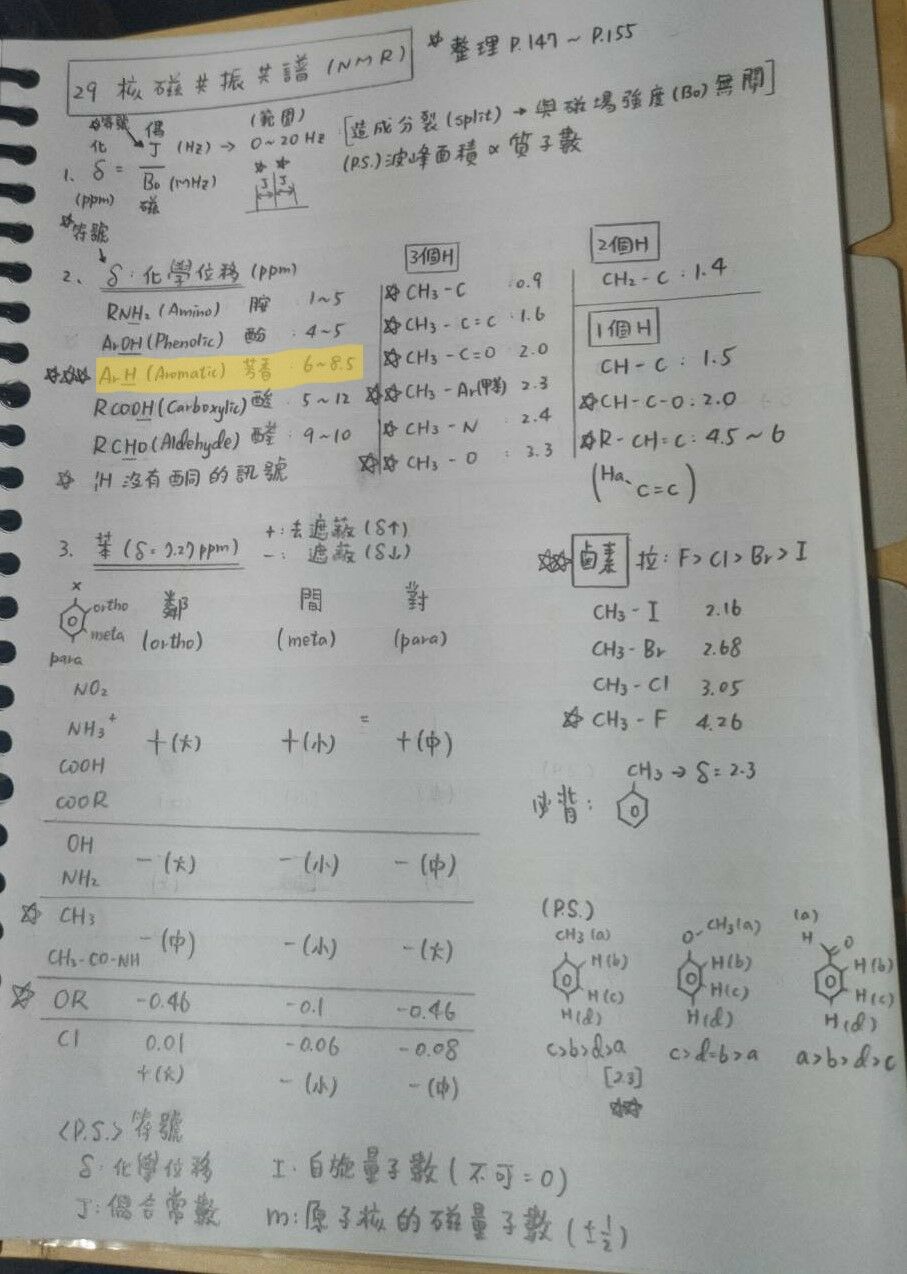 29 核磁共振共譜(NMR) ☆整理 P.147~P.155
☆等號 偶 (範圍)
化 J (Hz) → 0~20 Hz [造成分裂(split) → 與磁場強度(B₀)無關]
1. δ = B₀ (MHz) (P.S.)波峰面積 ∝ 質子數
(ppm) 磁 J J
☆符號
2、δ:化學位移(ppm)
RNH₂(Amino) 胺 1~5
ArOH(Phenolic) 酚:4~5
☆☆☆ ArH(Aromatic) 芳香:6~8.5
RCOOH(Carboxylic)酸:5~12
RCHO(Aldehyde)醛:9~10
☆ ¹H 沒有酮的訊號
3個H
☆CH₃-C :0.9
☆CH₃-C=C:1.6
☆CH₃-C=O 2.0
☆☆CH₃-Ar(甲苯) 2.3
☆CH₃-N : 2.4
☆☆CH₃-O : 3.3
2個H
CH₂-C:1.4
1個H
CH-C:1.5
☆CH-C-O:2.0
☆R-CH=C:4.5~6
(Ha、C=C)
3、苯(δ=7.27ppm) +:去遮蔽(δ↑)
-: 遮蔽(δ↓)
x
ortho
meta
para
鄰 間 對
(ortho) (meta) (para)
NO₂
NH₃⁺ +(大) +(小) = +(中)
COOH
COOR
OH -(大) -(小) -(中)
NH₂
☆ CH₃
CH₃-CO-NH -(中) -(小) -(大)
☆ OR -0.46 -0.1 -0.46
Cl 0.01 -0.06 -0.08
+(大) -(小) -(中)
☆☆ 鹵素 拉:F>Cl>Br>I
CH₃-I 2.16
CH₃-Br 2.68
CH₃-Cl 3.05
☆CH₃-F 4.26
CH₃→δ=2.3
必背:
(P.S.)
CH₃(a)
H(b)
H(c)
H(d)
c>b>d>a
[2.3]
☆☆
O-CH₃(a)
H(b)
H(c)
H(d)
c>d=b>a
(a)
H O
H(b)
H(c)
H(d)
a>b>d>c
<P.S.>符號
δ:化學位移 I:自旋量子數(不可=0)
J:偶合常數 m:原子核的磁量子數(±½)